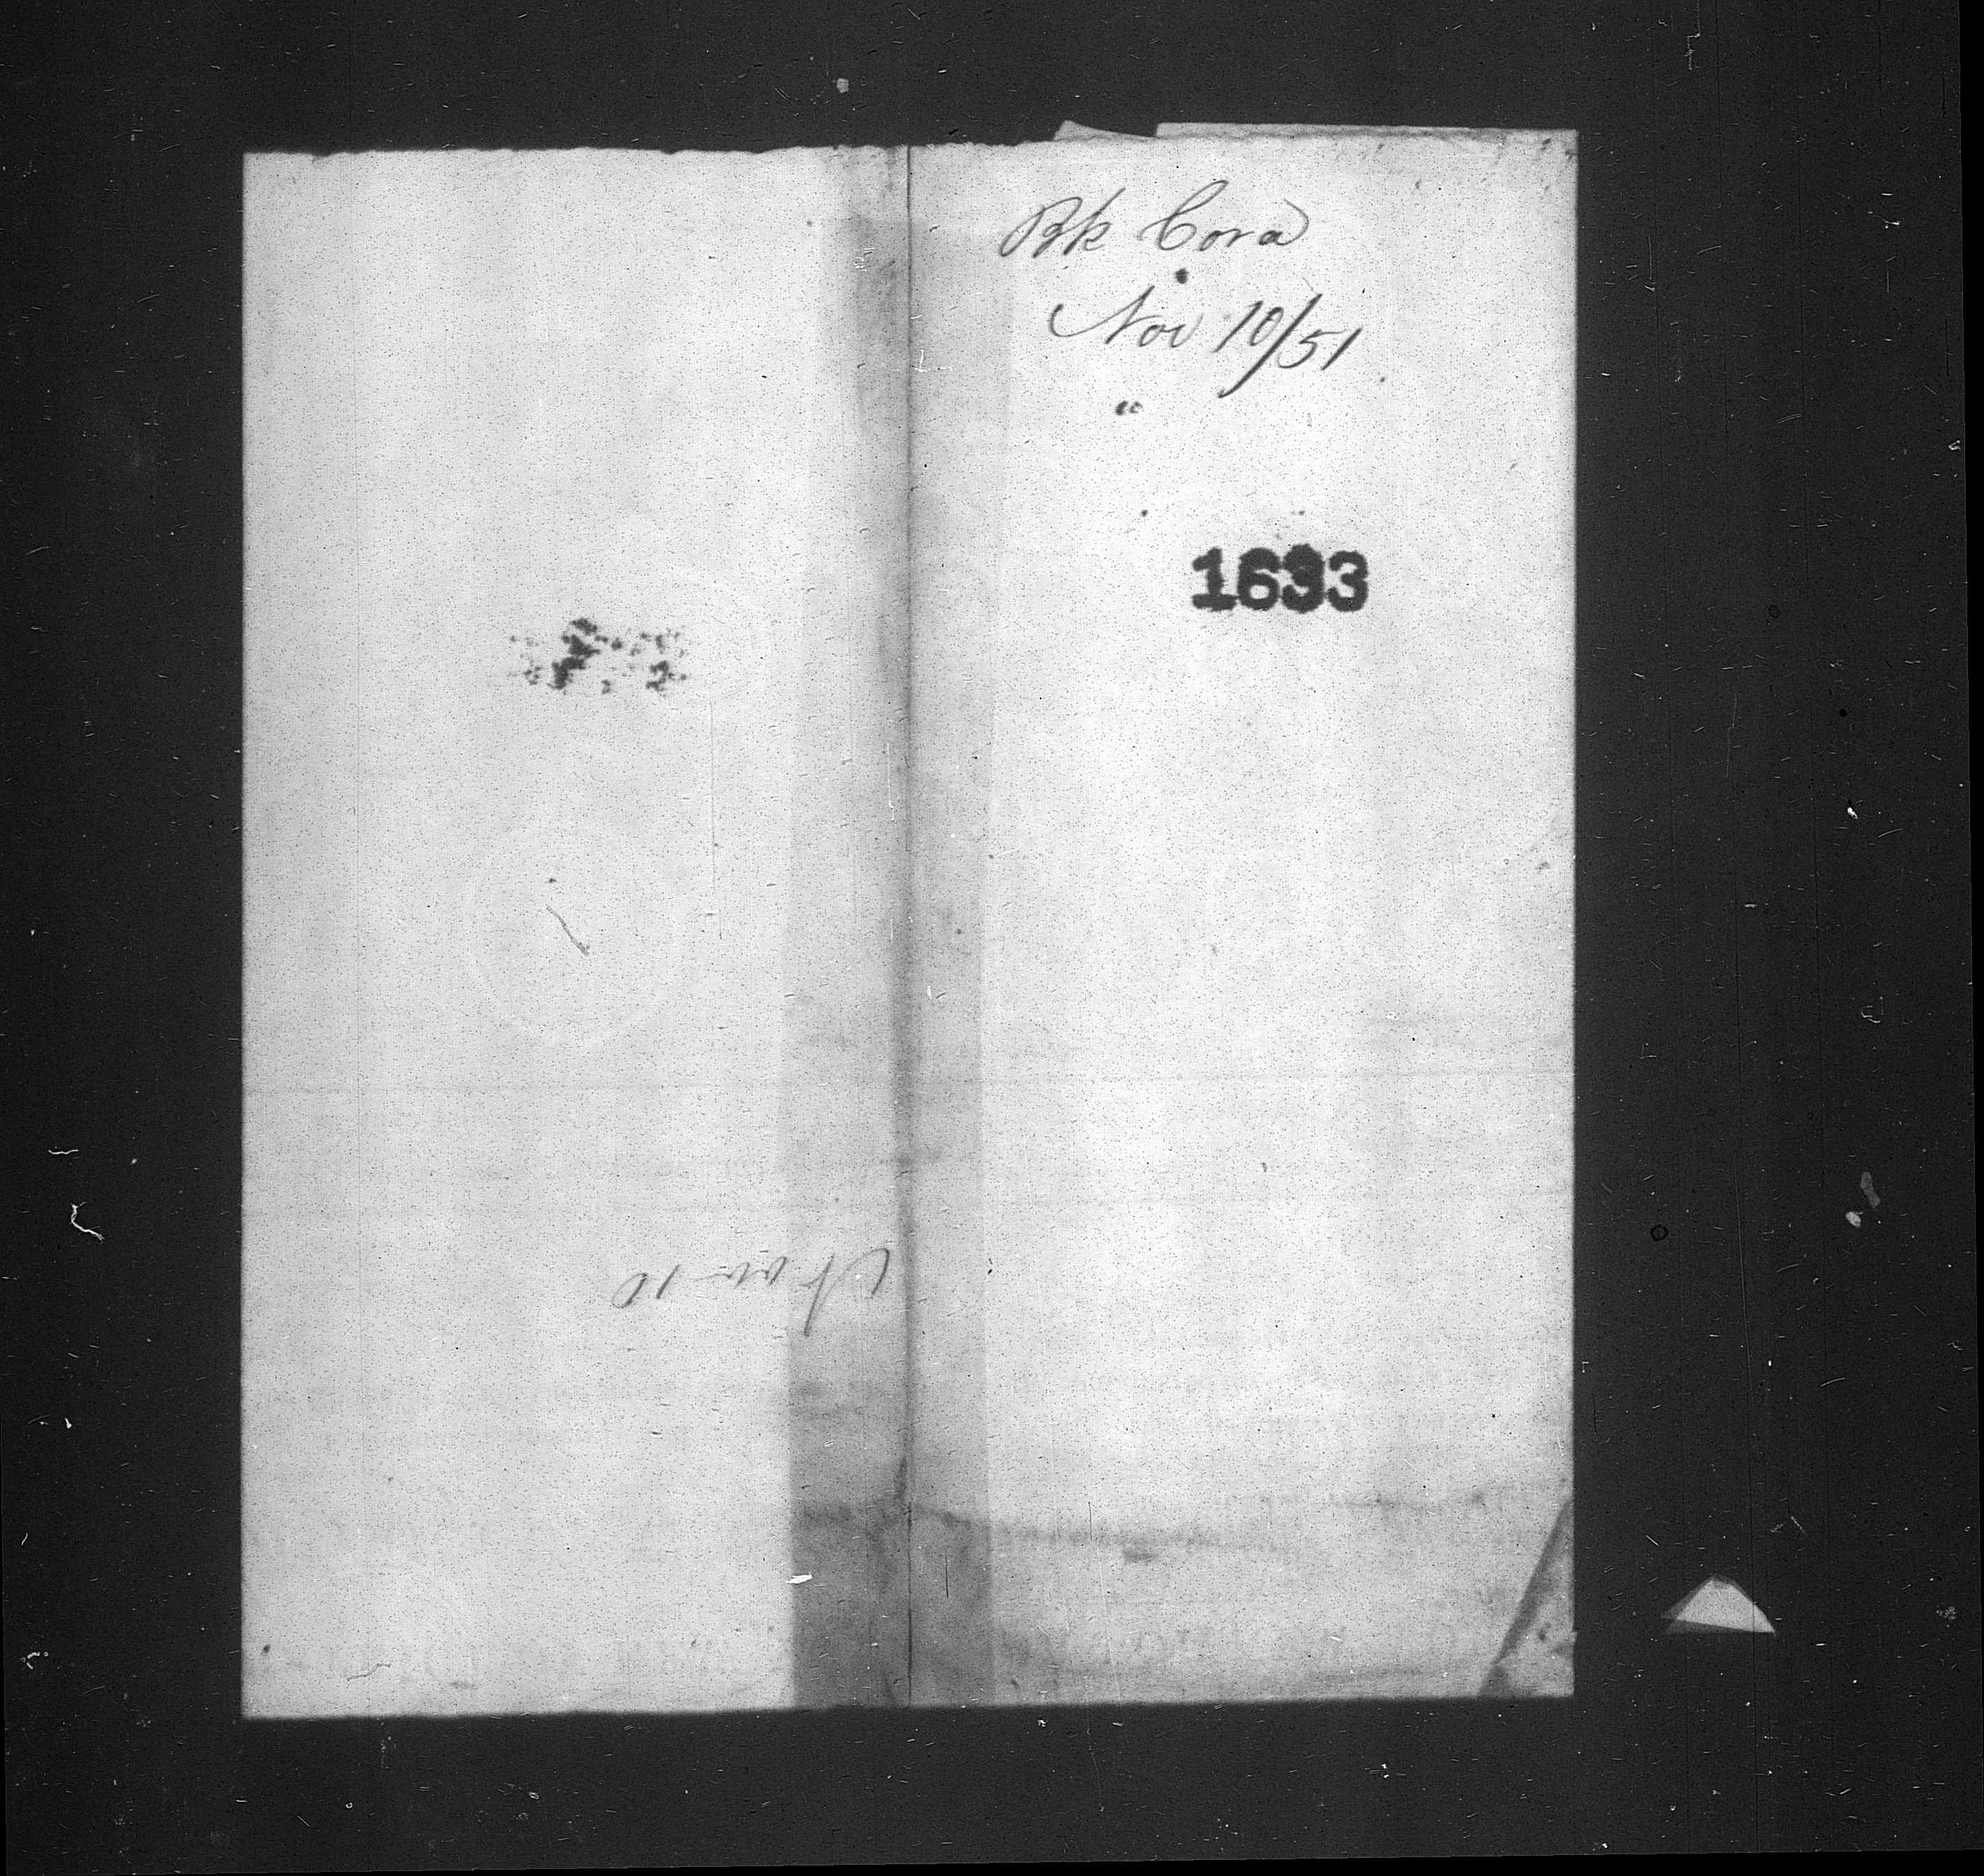 Bk Cora
Nov 10/51
"
1633
Nov 10